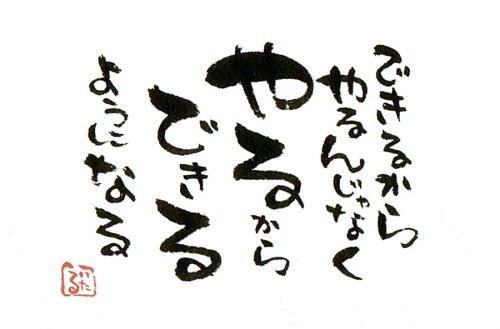 できるから
やるんじゃなく
やるから
できる
ようになる